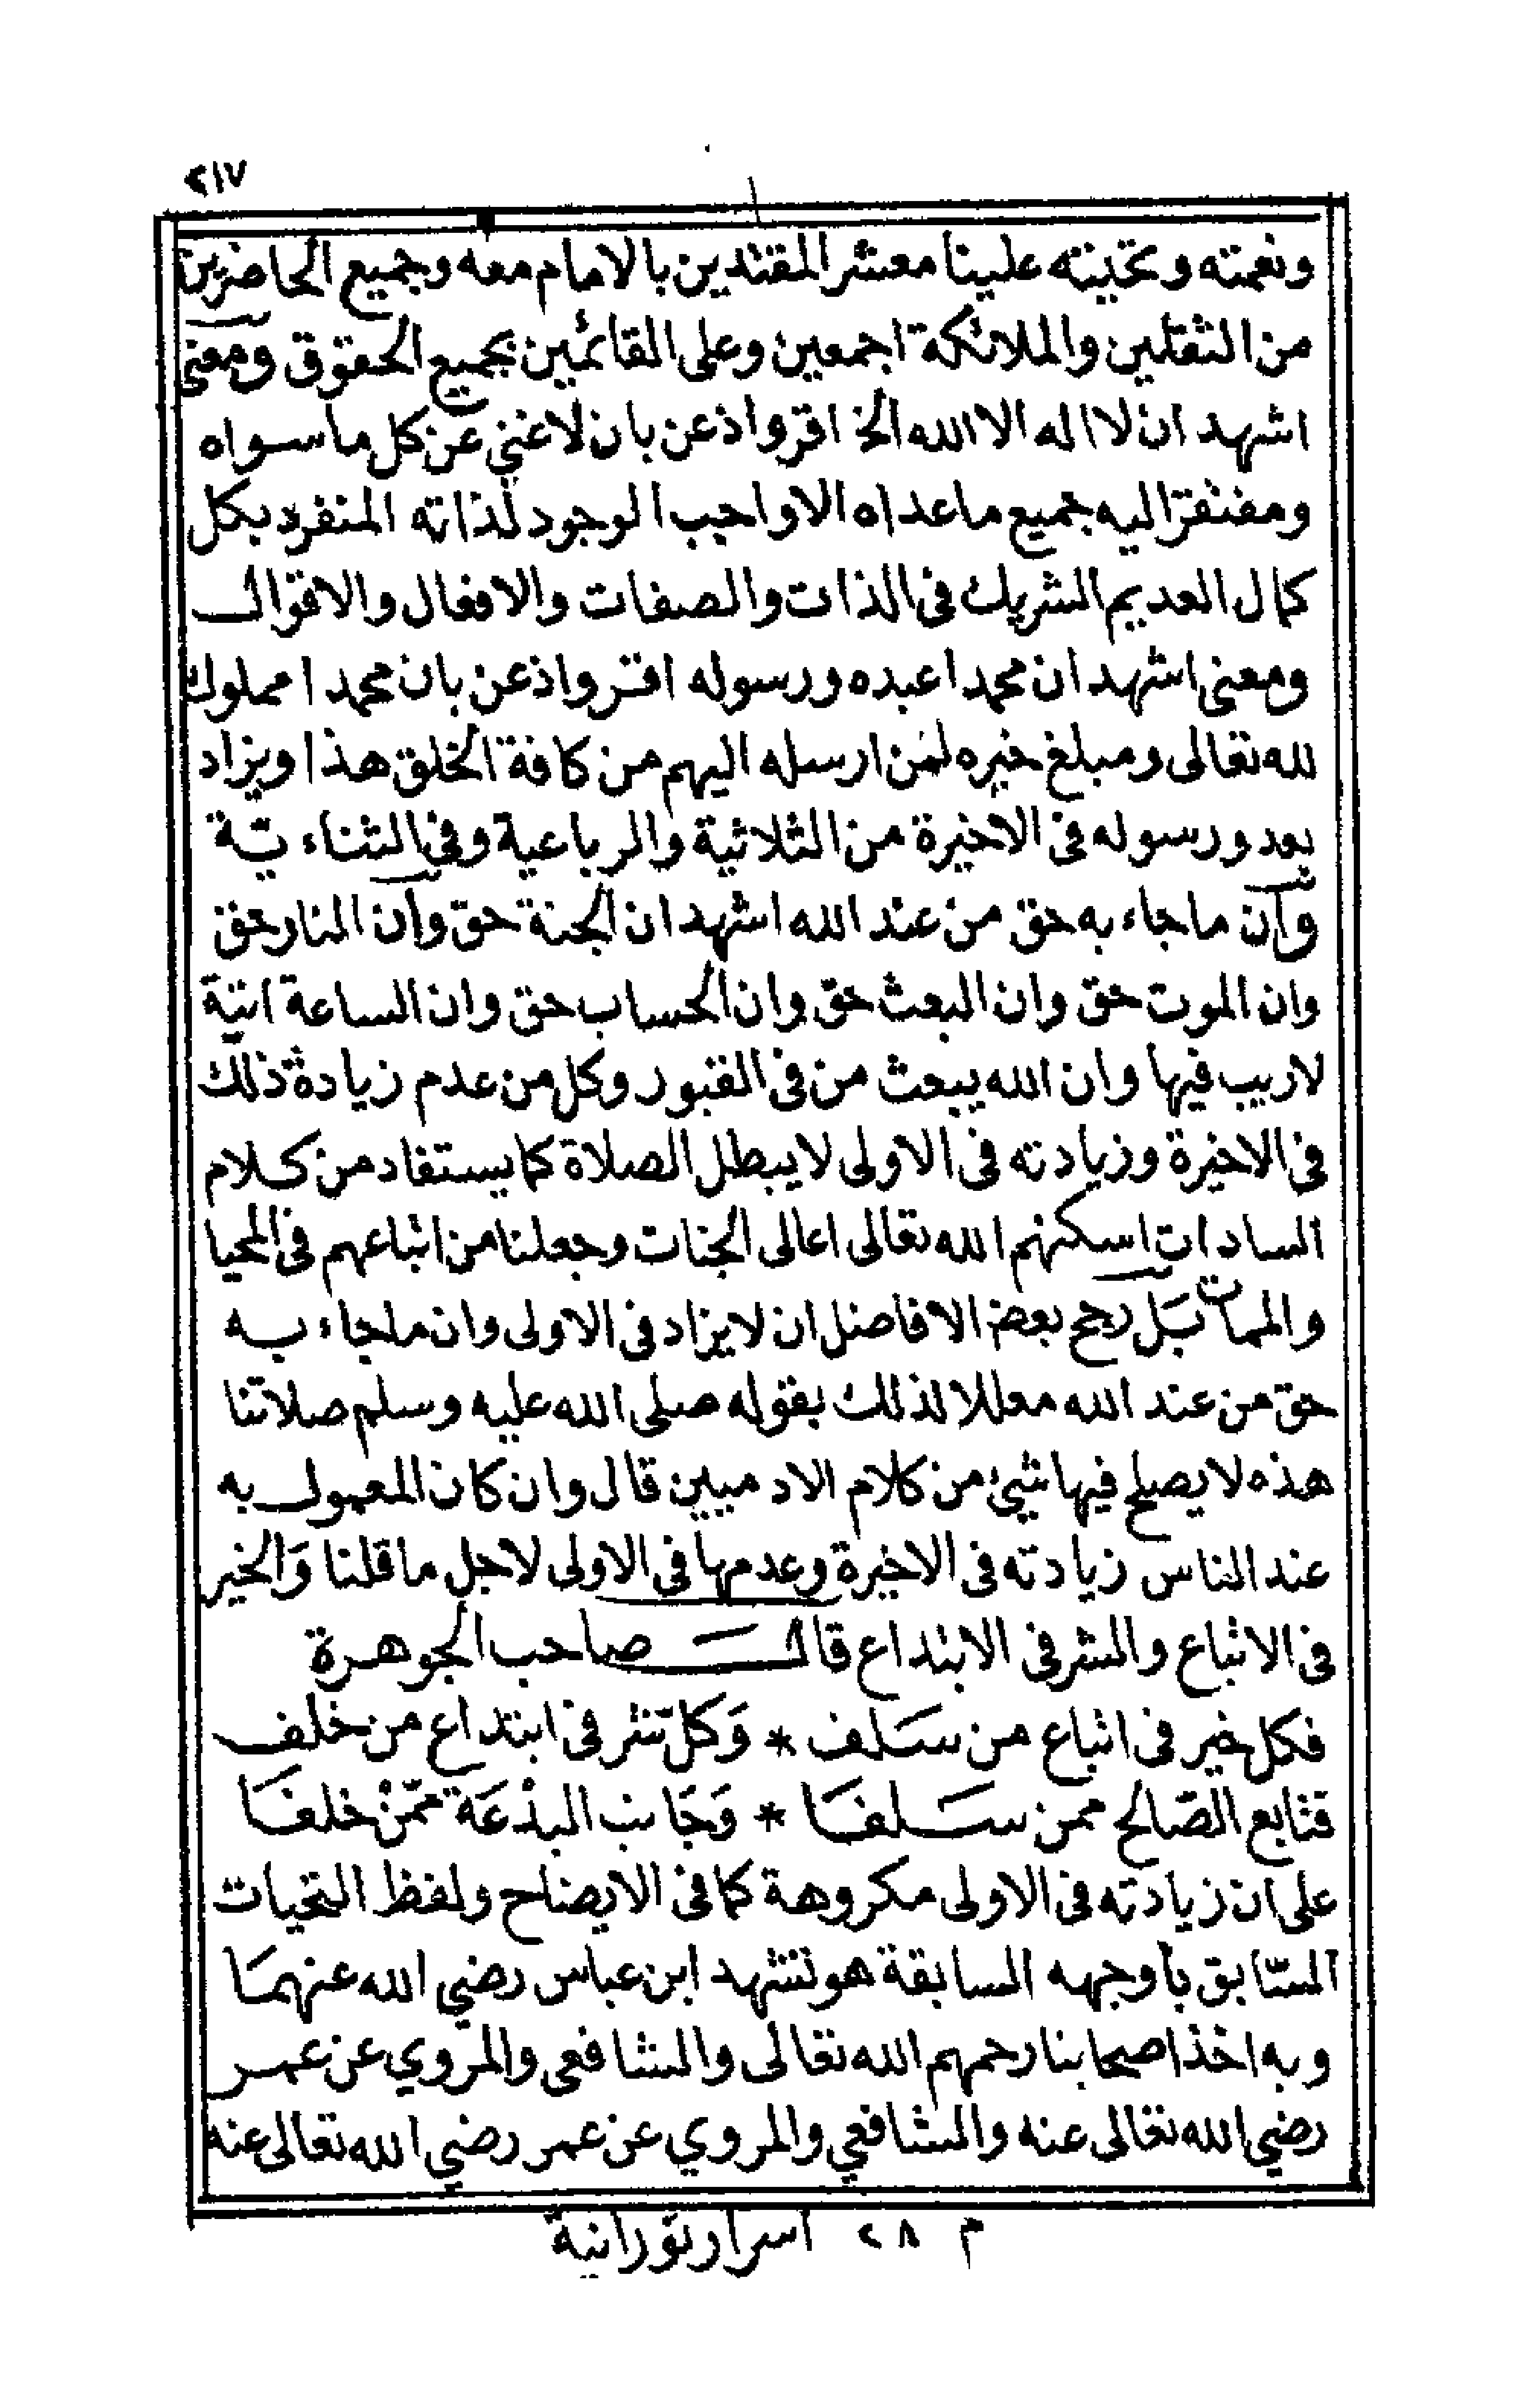 ٢١٧
ونعمته وتحيته علينا معشر المقتدين بالامام معه وجميع الحاضرين
من الثقلين والملائكة اجمعين وعلى القائمين بجميع الحقوق ومعنى
اشهد ان لا اله الا الله الخ اقر واذعن بان لا غني عن كل ما سواه
ومفتقرا اليه جميع ما عداه الا واجب الوجود لذاته المنفرد بكل
كمال العديم الشريك فى الذات والصفات والافعال والاقوال
ومعنى اشهد ان محمدا عبده ورسوله اقر واذعن بان محمدا مملوك
لله تعالى ومبلغ خبره لمن ارسله اليهم من كافة الخلق هذا ويزاد
بعد ورسوله فى الاخيرة من الثلاثية والرباعية وفي الثناءيّة
وان ما جاء به حق من عند الله اشهد ان الجنة حق وان النار حق
وان الموت حق وان البعث حق وان الحساب حق وان الساعة اتية
لا ريب فيها وان الله يبعث من فى القبور وكل من عدم زيادة ذلك
فى الاخيرة وزيادته فى الاولى لا يبطل الصلاة كما يستفاد من كلام
السادات اسكنهم الله تعالى اعالى الجنات وجعلنا من اتباعهم فى المحيا
والممات بَل رجح بعض الافاضل ان لا يزاد فى الاولى وان ما جاء به
حق من عند الله معللا لذلك بقوله صلى الله عليه وسلم صلاتنا
هذه لا يصلح فيها شيئ من كلام الادميين قال وان كان المعمول به
عند الناس زيادته فى الاخيرة وعدمها فى الاولى لاجل ما قلنا وَالخير
فى الاتباع والشر فى الابتداع قال صاحب الجوهرة
فكل خير فى اتباع من سَلف * وَكلّ شر فى ابتداع من خلف
فتابع الصّالح ممن سَلفَا * وَجَانب البدْعَة ممّنْ خلفَا
على ان زيادته فى الاولى مكروهة كما فى الايضاح ولفظ التحيات
السّابق بأوجهه السابقة هو تشهد ابن عباس رضي الله عنهمَا
وبه اخذ اصحابنا رحمهم الله تعالى والشافعى والمروي عن عمر
رضي الله تعالى عنه والشافعي والمروي عن عمر رضي الله تعالى عنه
م ٢٨ اسرار نورانية